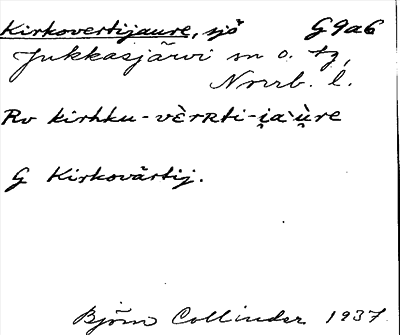 Kirkovertijaure, sjö G9a6
Jukkasjärvi sn o. tg,
Norrb. l.
Rv kirhku-vèrrti-i̯a`u̯re
G Kirkovärtij.
Björn Collinder 1937